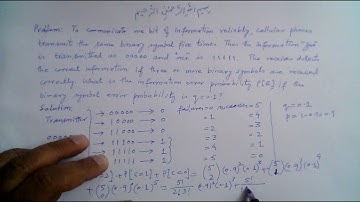 بسم الله الرحمن الرحيم
Problem: To communicate one bit of information reliably, cellular phones
transmit the same binary symbol five times. Thus the information "zero"
is transmitted as 00000 and "one" is 11111. The receiver detects
the correct information if three or more binary symbols are received
correctly. What is the information error probability P[E] if the
binary symbol error probability is q=0.1?
Solution:
Transmitter
00000 → 0 failure=0 success=5
10000 → 0 =1 =4
11000 → 0 =2 =3
11100 → 1 =3 =2
11110 → 1 =4 =1
11111 → 1 =5 =0
q=0.1
p=1-0.1=0.9
00000
+P[S=1]+P[S=0] = (5 2)(0.9)²(0.1)³+(5 1)(0.9)(0.1)⁴
+(5 0)(0.9)⁰(0.1)⁵ = 5!/2!3! (0.9)²(0.1)³+5!